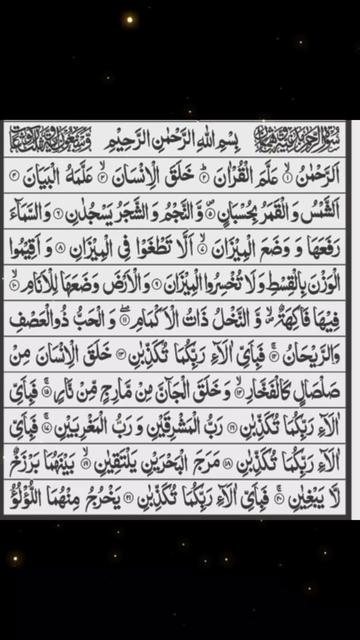 بِسْمِ اللهِ الرَّحْمٰنِ الرَّحِيْمِ
اَلرَّحْمٰنُ ۙ۱ عَلَّمَ الْقُرْاٰنَ ؕ۲ خَلَقَ الْاِنْسَانَ ۙ۳ عَلَّمَهُ الْبَيَانَ ۴
اَلشَّمْسُ وَ الْقَمَرُ بِحُسْبَانٍ ۪۵ وَّ النَّجْمُ وَ الشَّجَرُ يَسْجُدٰنِ ۶ وَ السَّمَآءَ
رَفَعَهَا وَ وَضَعَ الْمِيْزَانَ ۙ۷ اَلَّا تَطْغَوْا فِی الْمِيْزَانِ ۸ وَ اَقِيْمُوا
الْوَزْنَ بِالْقِسْطِ وَ لَا تُخْسِرُوا الْمِيْزَانَ ۹ وَ الْاَرْضَ وَضَعَهَا لِلْاَنَامِ ۙ۱۰
فِيْهَا فَاكِهَةٌ ۪ۙ وَّ النَّخْلُ ذَاتُ الْاَكْمَامِ ۖ۱۱ وَ الْحَبُّ ذُو الْعَصْفِ
وَ الرَّيْحَانُ ۚ۱۲ فَبِاَیِّ اٰلَآءِ رَبِّكُمَا تُكَذِّبٰنِ ۱۳ خَلَقَ الْاِنْسَانَ مِنْ
صَلْصَالٍ كَالْفَخَّارِ ۙ۱۴ وَ خَلَقَ الْجَآنَّ مِنْ مَّارِجٍ مِّنْ نَّارٍ ۚ۱۵ فَبِاَیِّ
اٰلَآءِ رَبِّكُمَا تُكَذِّبٰنِ ۱۶ رَبُّ الْمَشْرِقَيْنِ وَ رَبُّ الْمَغْرِبَيْنِ ۚ۱۷ فَبِاَیِّ
اٰلَآءِ رَبِّكُمَا تُكَذِّبٰنِ ۱۸ مَرَجَ الْبَحْرَيْنِ يَلْتَقِيٰنِ ۙ۱۹ بَيْنَهُمَا بَرْزَخٌ
لَّا يَبْغِيٰنِ ۚ۲۰ فَبِاَیِّ اٰلَآءِ رَبِّكُمَا تُكَذِّبٰنِ ۲۱ يَخْرُجُ مِنْهُمَا اللُّؤْلُؤُ